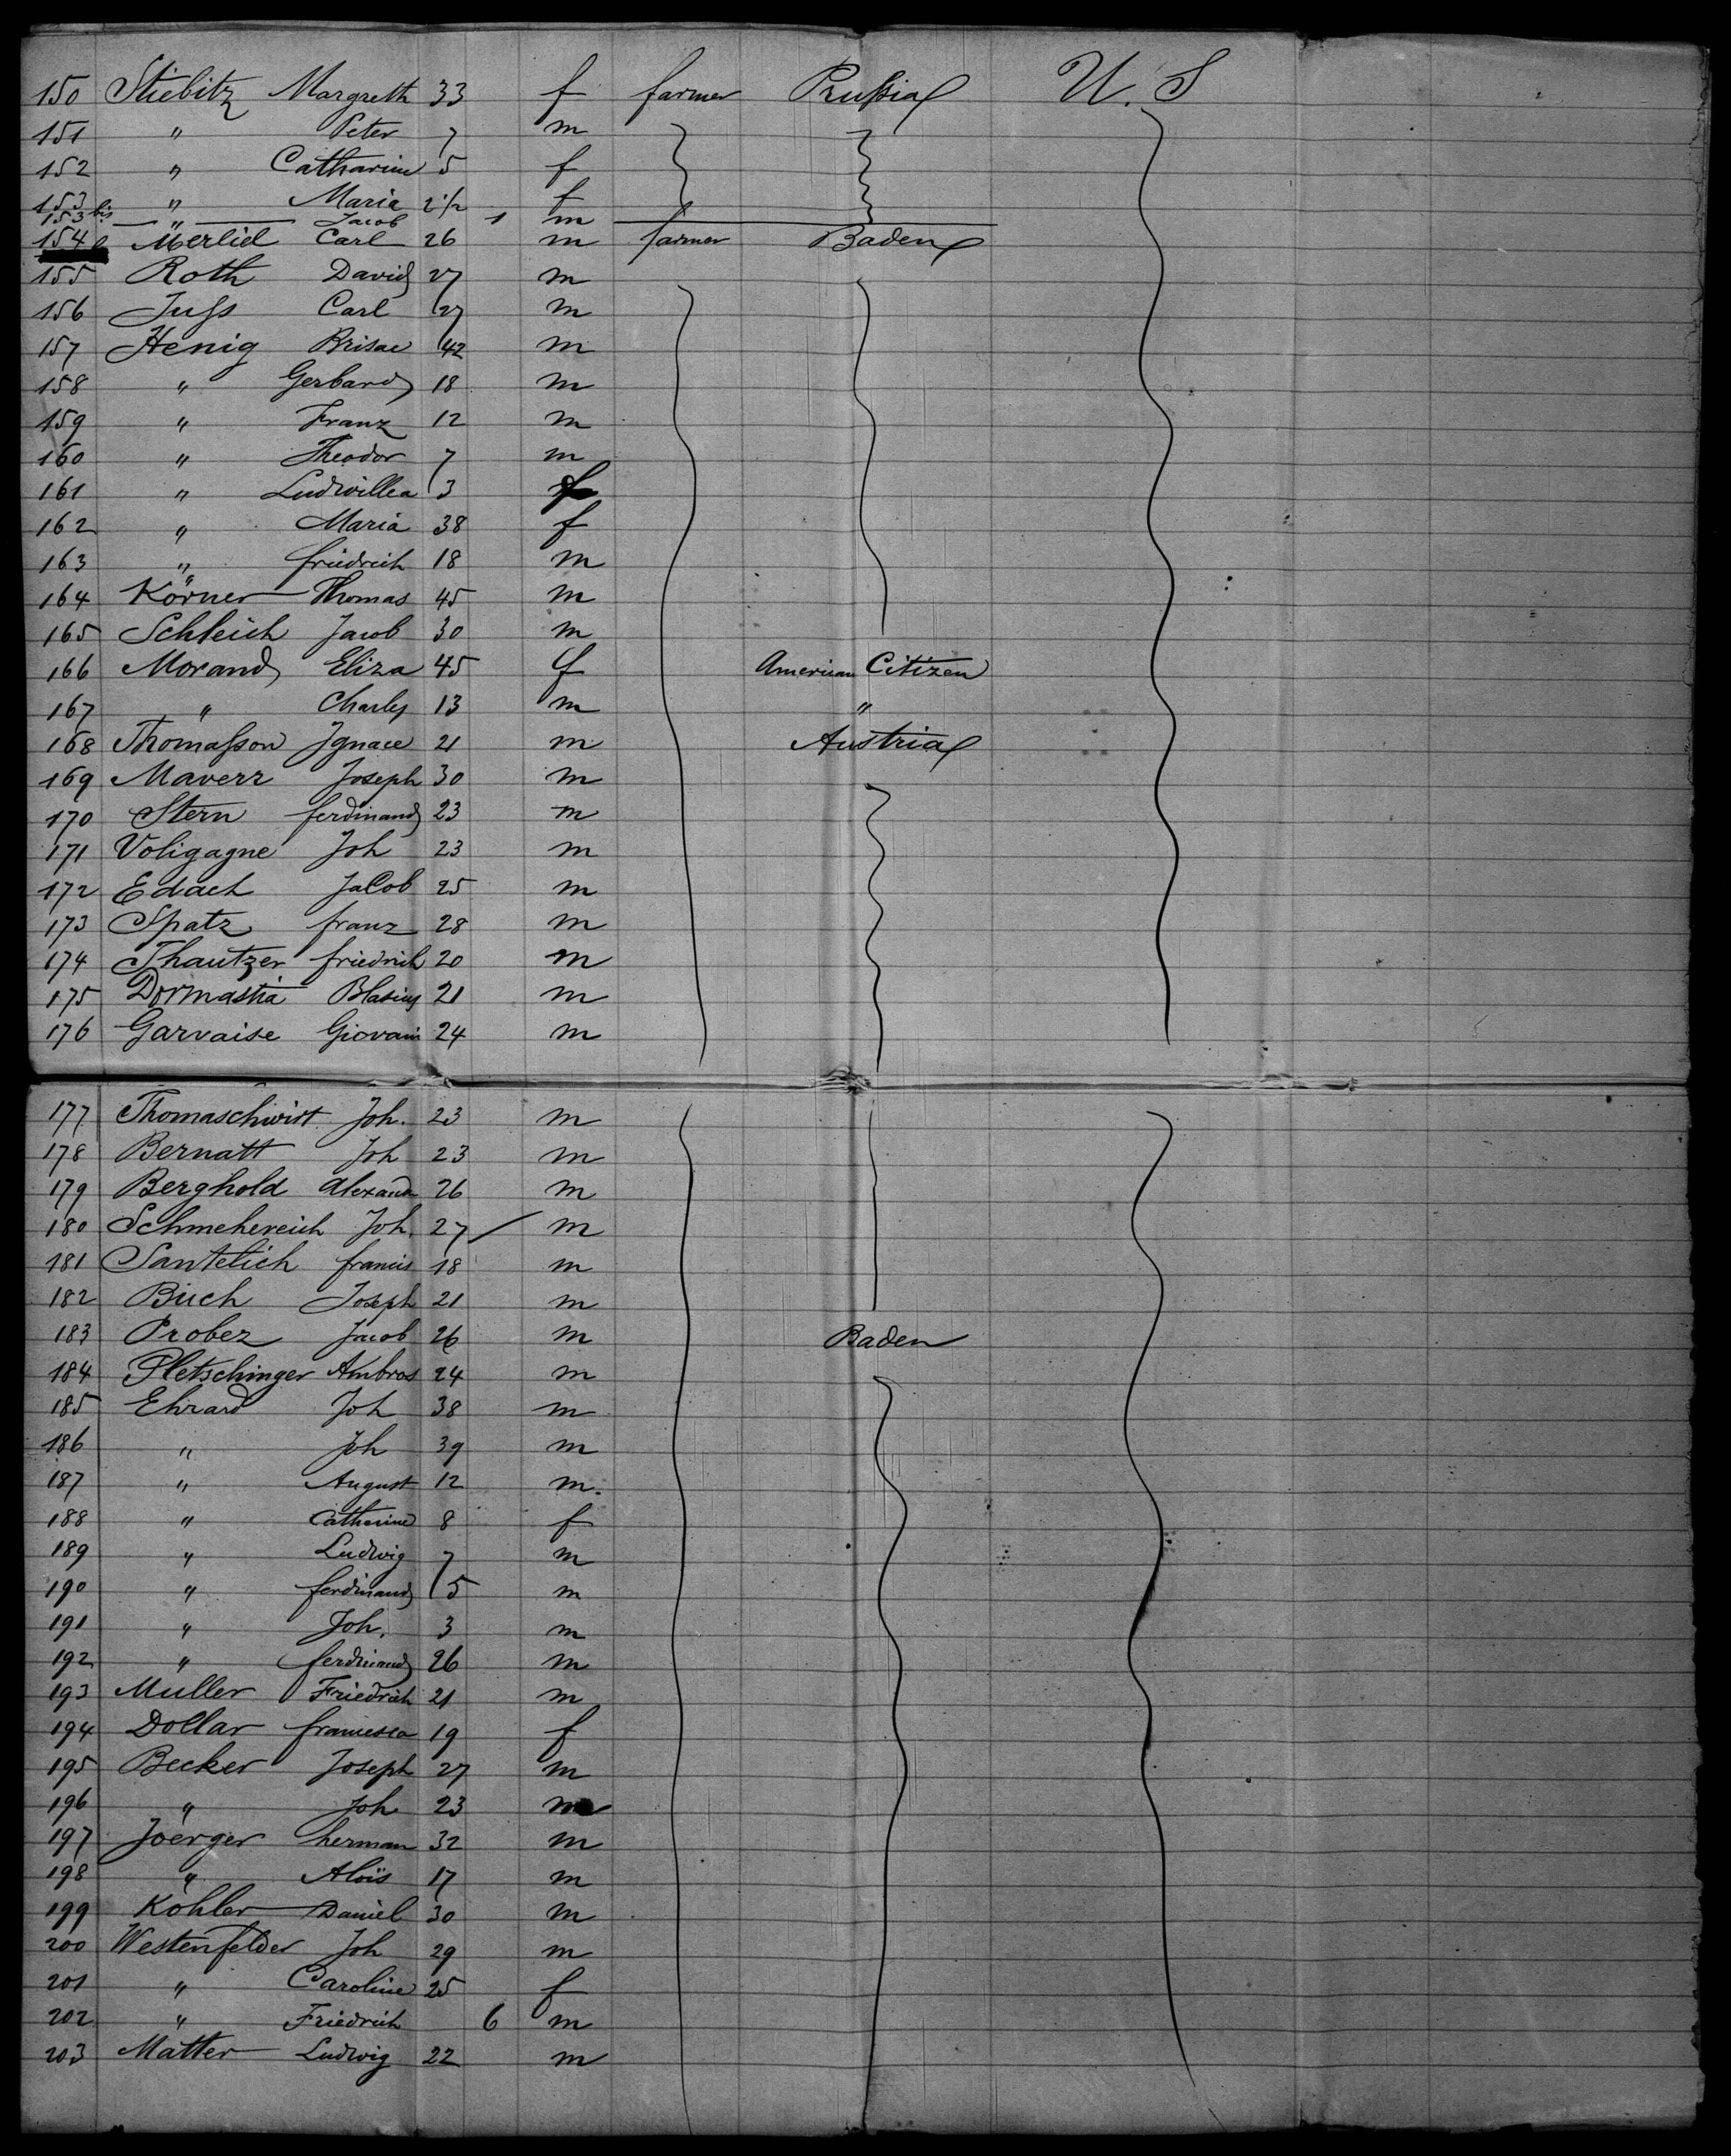 150 Stiebitz Margreth 33 f farmer Prußia U. S
151 " Peter 7 m
152 " Catharine 5 f
153 " Maria 2 1/2 f
153 bis " Jacob 1 m
154 Merlid Carl 26 m farmer Baden
155 Roth David 27 m
156 Juss Carl 27 m
157 Henig Brisac 42 m
158 " Gerbard 18 m
159 " Franz 12 m
160 " Theodor 7 m
161 " Ludwillea 3 f
162 " Maria 38 f
163 " friedrich 18 m
164 Körner Thomas 45 m
165 Schleich Jacob 30 m
166 Morand Eliza 45 f American Citizen
167 " Charles 13 m "
168 Thomasson Ignace 21 m Austria
169 Maverr Joseph 30 m
170 Stern ferdinand 23 m
171 Voligagne Joh 23 m
172 Edach Jacob 25 m
173 Spatz franz 28 m
174 Thautzer friedrich 20 m
175 Dormastia Blasius 21 m
176 Garvaise Giovani 24 m
177 Thomaschwirt Joh. 23 m
178 Bernatt Joh 23 m
179 Berghold Alexand 26 m
180 Schmehereich Joh. 27 m
181 Santelich francis 18 m
182 Buch Joseph 21 m
183 Probez Jacob 26 m Baden
184 Pletschinger Ambros 24 m
185 Ehrard Joh 38 m
186 " Joh 39 m
187 " August 12 m.
188 " Catherine 8 f
189 " Ludwig 7 m
190 " ferdinand 5 m
191 " Joh. 3 m
192 " ferdinand 26 m
193 Muller Friedrich 21 m
194 Dollar francesca 19 f
195 Becker Joseph 27 m
196 " Joh 23 m
197 Joerger herman 32 m
198 " Aloïs 17 m
199 Kohler Daniel 30 m
200 Westenfelder Joh 29 m
201 " Caroline 25 f
202 " Friedrich 6 m
203 Matter Ludwig 22 m